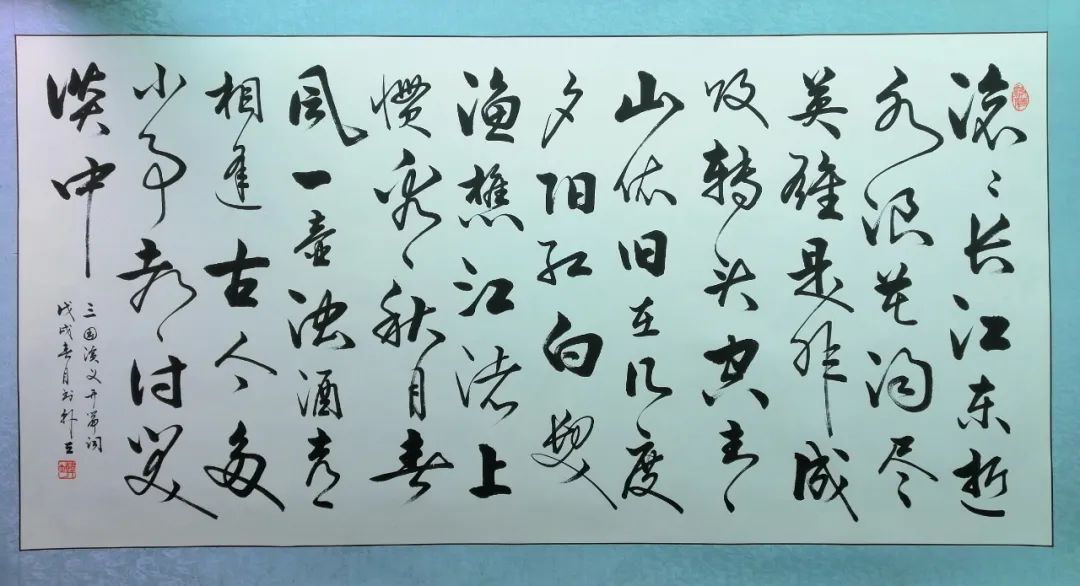 滚〻长江东逝
水浪花淘尽
英雄是非成
败转头空青
山依旧在几度
夕阳红白发
渔樵江渚上
惯看秋月春
风一壶浊酒喜
相逢古今多
少事都付笑
谈中
三国演义开篇词
戊戌春月书